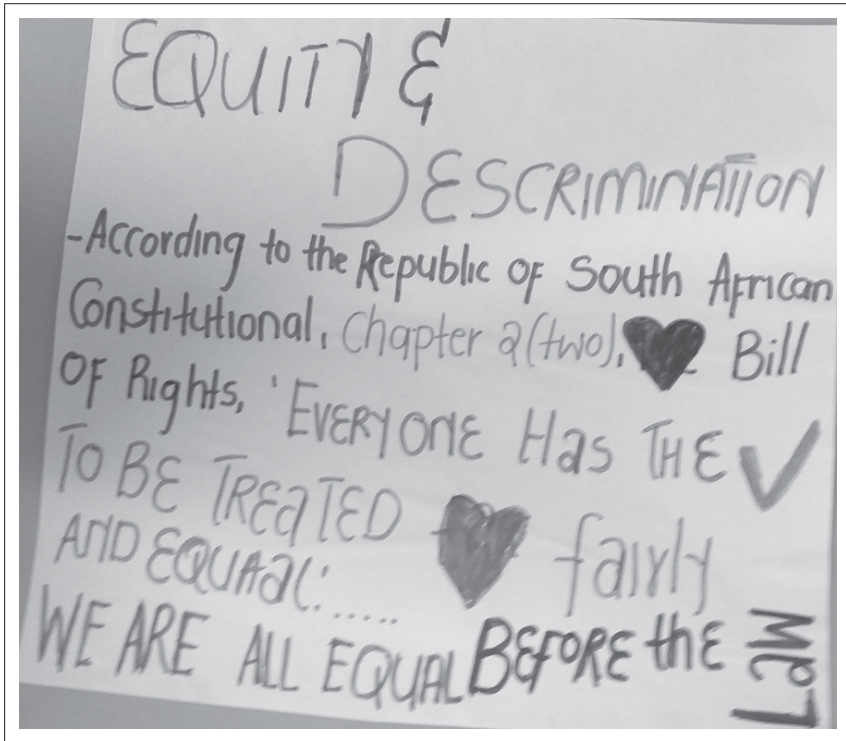 EQUITY &
DESCRIMINATION
-According to the Republic of South African
Constitutional, Chapter 2(two), Bill
OF Rights, 'EVERYONE Has THE
TO BE TREaTED fairly
AND EQUAaL'.....
WE ARE ALL EQUAL BEFORE the LaW